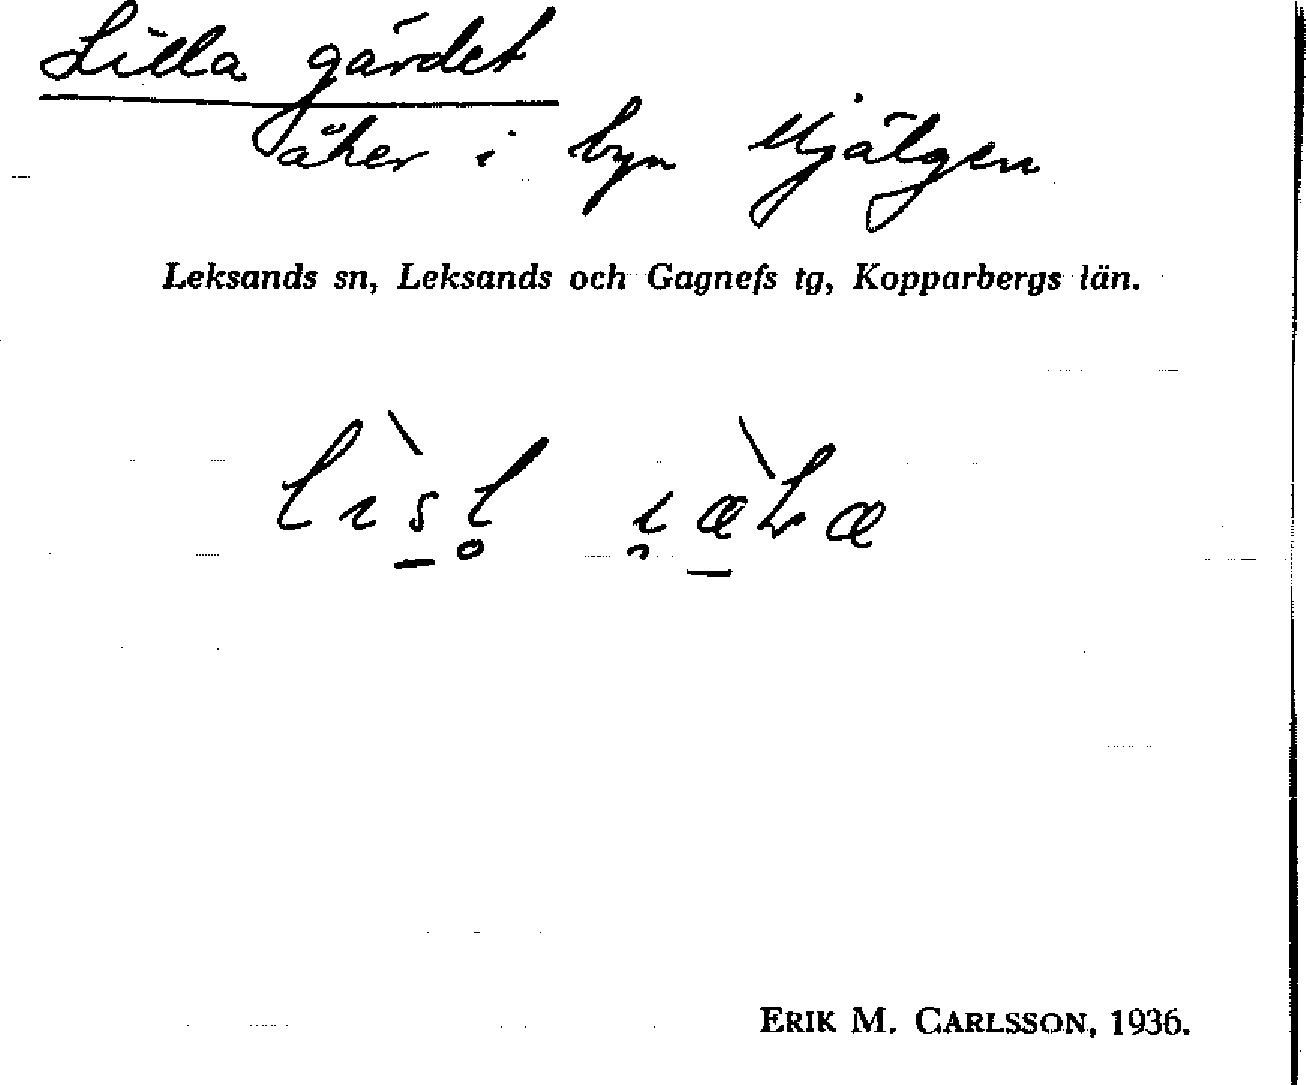 Lilla gärdet
åker i byn Hjälgen
Leksands sn, Leksands och Gagnefs tg, Kopparbergs län.
ERIK M. CARLSSON, 1936.